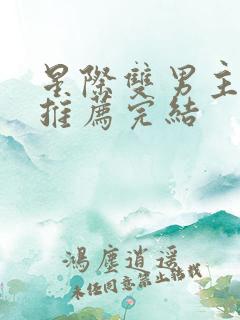 星際雙男主
推薦完結
鴻塵逍遥
未任同意禁止轉載